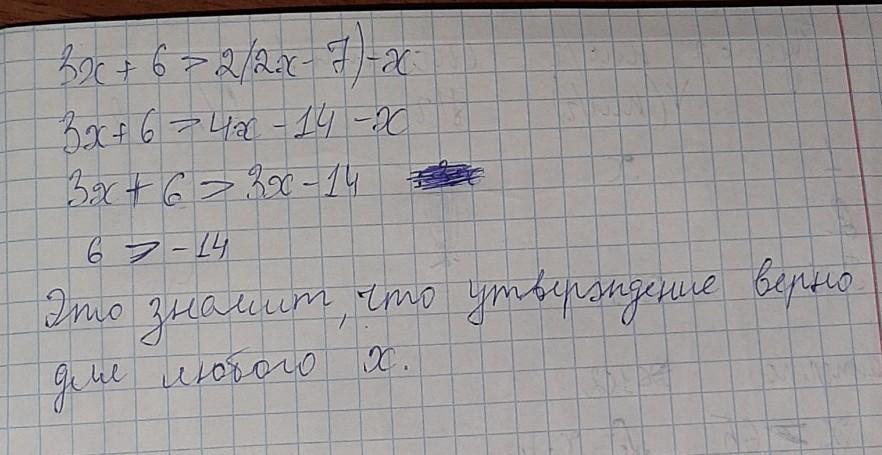 3x + 6 > 2(2x - 7) - x
3x + 6 > 4x - 14 - x
3x + 6 > 3x - 14
6 > -14
Это значит, что утверждение верно
для любого x.